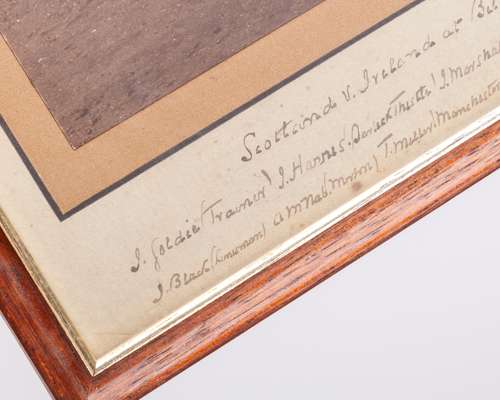 Scotland v. Ireland at Bel
J. Goldie (Trainer) J. Harris. Partick Thistle) J. Marshal
J. Black (Linesman) A McNab. Morton) T. Miller. Manchester